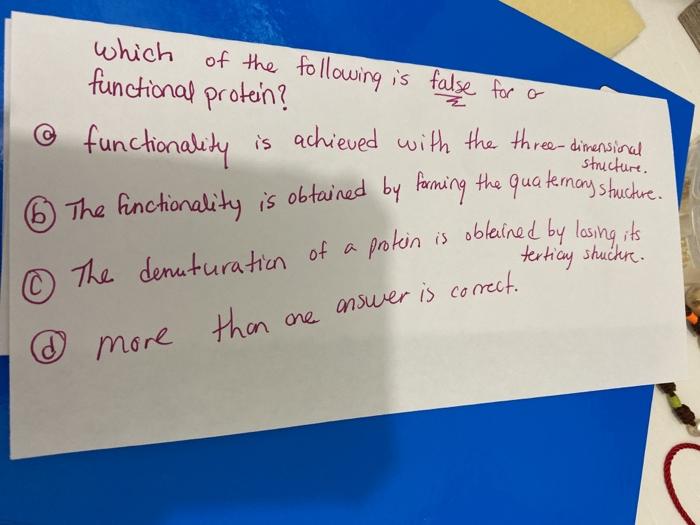 which of the following is false for a
functional protein?
ⓐ functionality is achieved with the three-dimensional
structure.
ⓑ The functionality is obtained by forming the quaternary structure.
ⓒ The denuturation of a protein is obtained by losing its
tertiay structure.
ⓓ more than one answer is correct.